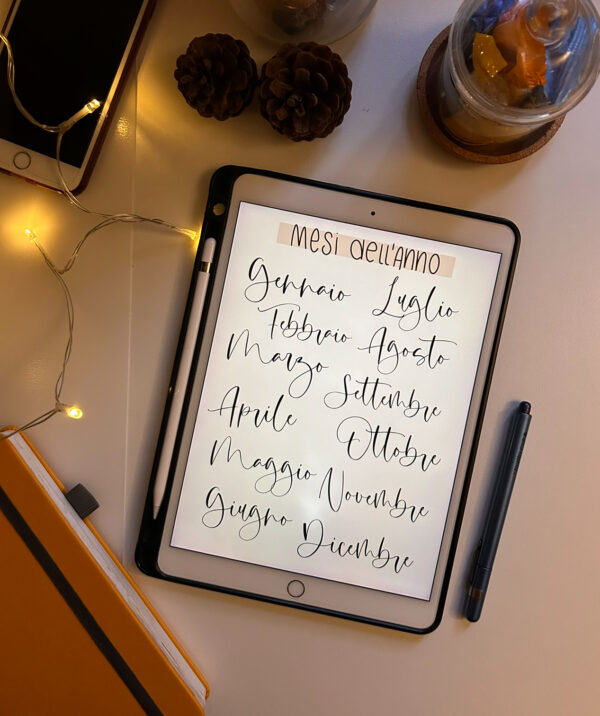 Mesi dell'anno
Gennaio
Febbraio
Marzo
Aprile
Maggio
Giugno
Luglio
Agosto
Settembre
Ottobre
Novembre
Dicembre